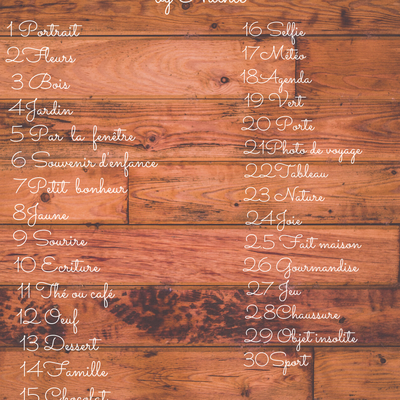 by
1 Portrait
2 Fleurs
3 Bois
4 Jardin
5 Par la fenêtre
6 Souvenir d'enfance
7 Petit bonheur
8 Jaune
9 Sourire
10 Ecriture
11 Thé ou café
12 Oeuf
13 Dessert
14 Famille
15 Chocolat
16 Selfie
17 Météo
18 Agenda
19 Vert
20 Porte
21 Photo de voyage
22 Tableau
23 Nature
24 Joie
25 Fait maison
26 Gourmandise
27 Jeu
28 Chaussure
29 Objet insolite
30 Sport